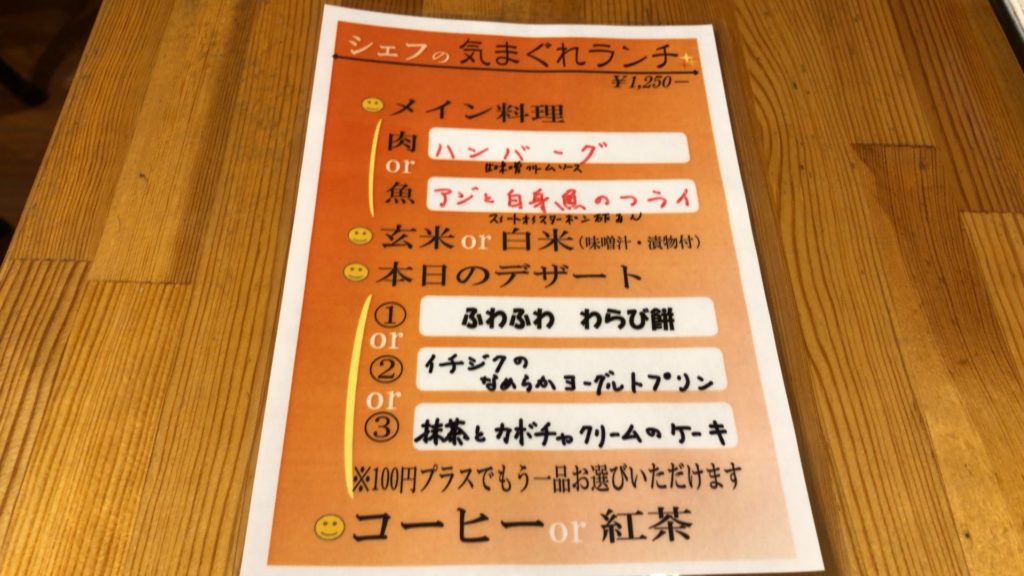 シェフの気まぐれランチ
￥1,250－
メイン料理
肉
ハンバーグ
or
魚
アジと白身魚のフライ
玄米 or 白米（味噌汁・漬物付）
本日のデザート
①
ふわふわ わらび餅
or
②
イチジクの
なめらかヨーグルトプリン
or
③
抹茶とカボチャクリームのケーキ
※100円プラスでもう一品お選びいただけます
コーヒー or 紅茶